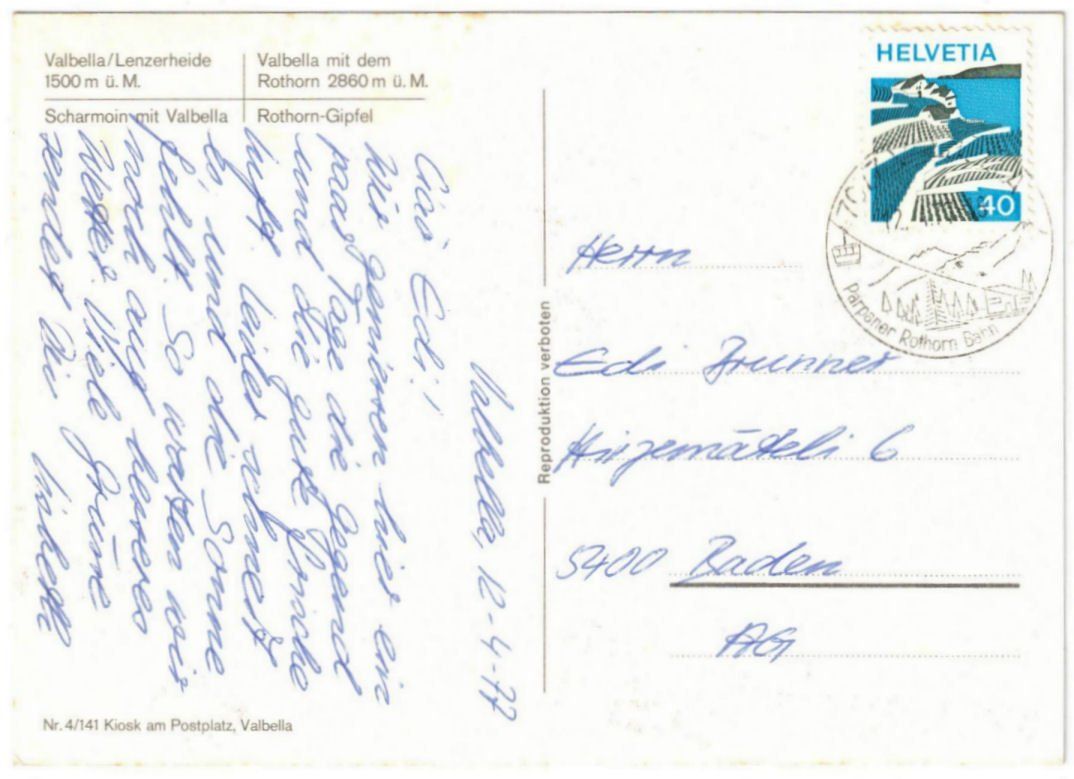 Valbella/Lenzerheide
1500 m ü. M.
Valbella mit dem
Rothorn 2860 m ü. M.
Scharmoin mit Valbella
Rothorn-Gipfel
Valbella, 12-4-77
Ciao Edi!
Wir geniessen hier ein
paar Tage die Gegend
und die gute frische
Luft. Leider schneit
es und die Sonne
fehlt. So warten wir
noch auf besseres
Wetter. Viele Grüsse
sendet Dir
Nr. 4/141 Kiosk am Postplatz, Valbella
Reproduktion verboten
HELVETIA
40
Parpaner Rothorn Bahn
Herrn
Edi Brunner
Hirzemäteli 6
5400 Baden
AG